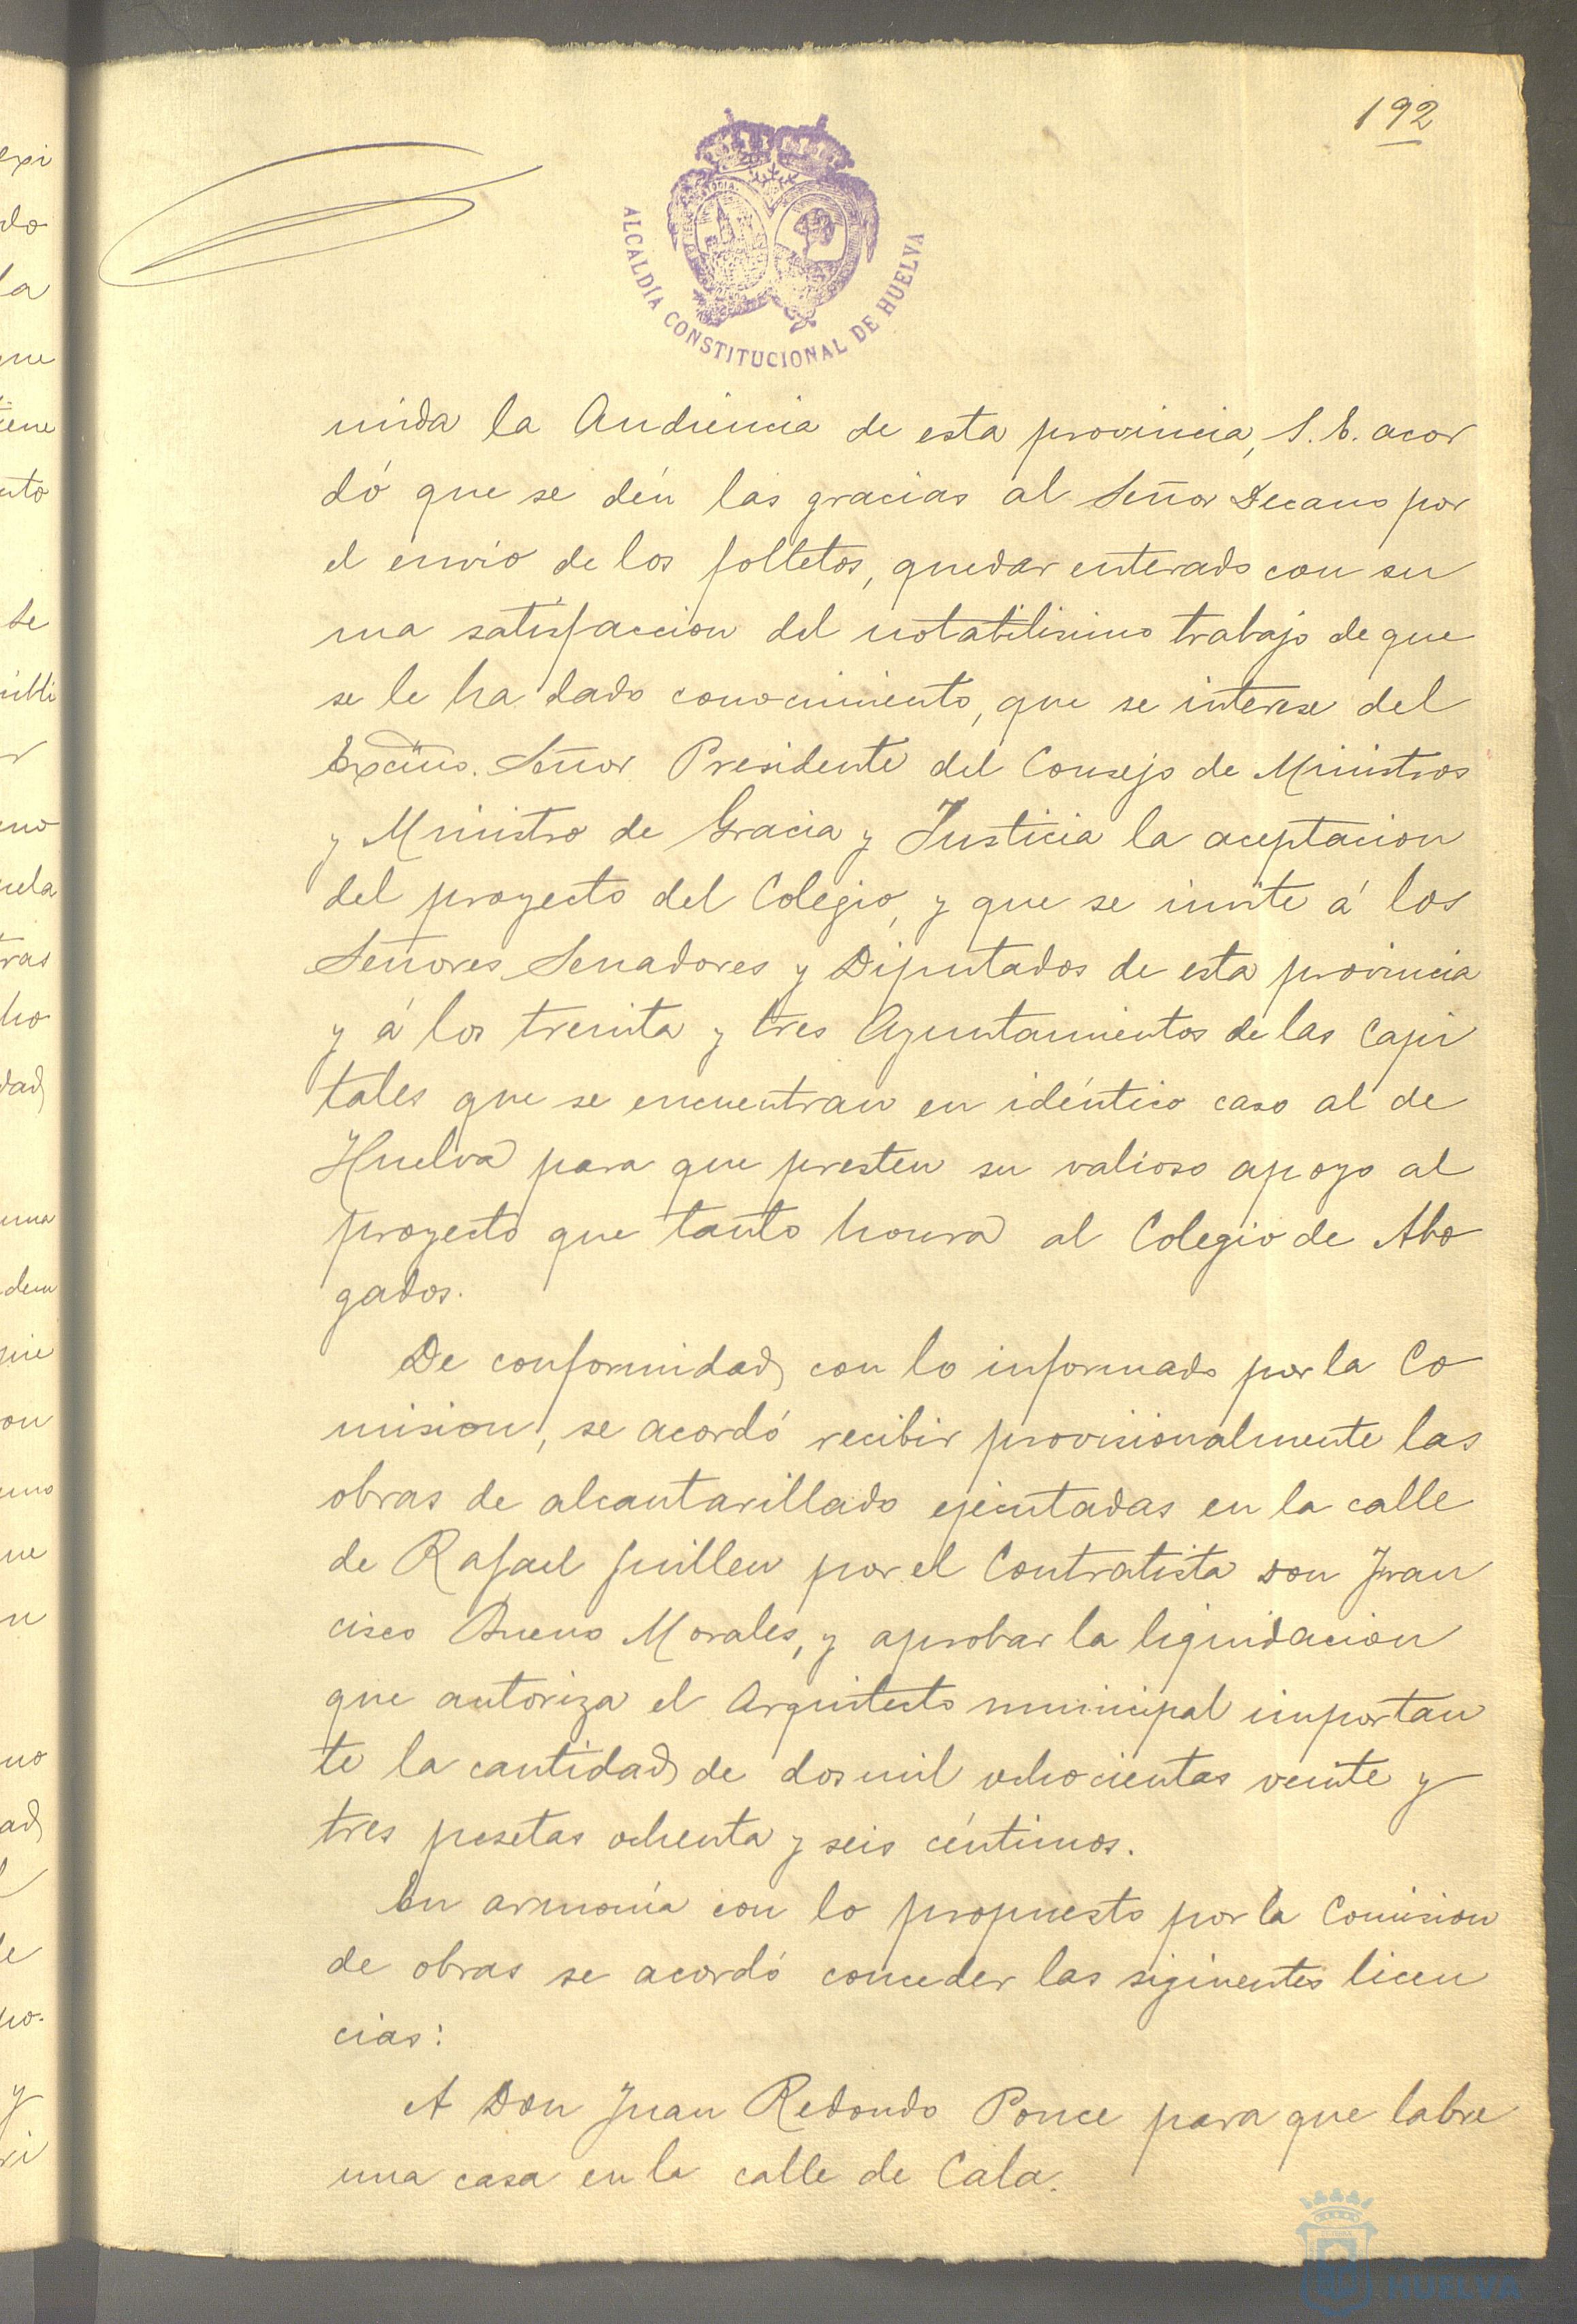 192
ALCALDÍA CONSTITUCIONAL DE HUELVA
mida la Audiencia de esta provincia, S. E. acor
dó que se dén las gracias al Señor Decano por
el envio de los folletos, quedar enterado con su
ma satisfaccion del notabilisimo trabajo de que
se le ha dado conocimiento, que se interese del
Excmo. Señor Presidente del Consejo de Ministros
y Ministro de Gracia y Justicia la aceptacion
del proyecto del Colegio, y que se invite á los
Señores Senadores y Diputados de esta provincia
y á los treinta y tres Ayuntamientos de las Capi
tales que se encuentran en idéntico caso al de
Huelva para que presten su valioso apoyo al
proyecto que tanto honra al Colegio de Abo
gados.
De conformidad con lo informado por la Co
mision, se acordó recibir provisionalmente las
obras de alcantarillado ejecutadas en la calle
de Rafael Guillen por el Contratista Don Fran
cisco Bueno Morales, y aprobar la liquidacion
que autoriza el Arquitecto municipal importan
te la cantidad de dos mil ochocientas veinte y
tres pesetas ochenta y seis céntimos.
En armonía con lo propuesto por la Comision
de obras se acordó conceder las siguientes licen
cias:
A Don Juan Redondo Ponce para que labre
una casa en la calle de Cala.
HUELVA